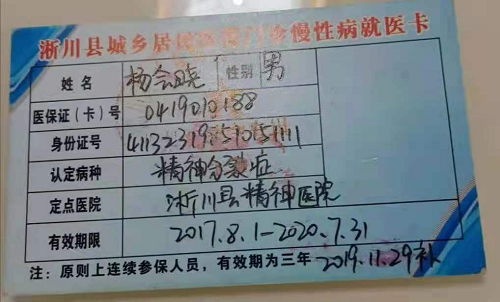 淅川县城乡居民 门诊慢性病就医卡
姓名 杨会晓 性别 男
医保证（卡）号 0419010188
身份证号 411323198510151111
认定病种 精神分裂症
定点医院 淅川县精神医院
有效期限 2017.8.1-2020.7.31
注：原则上连续参保人员，有效期为三年 2019.11.29补